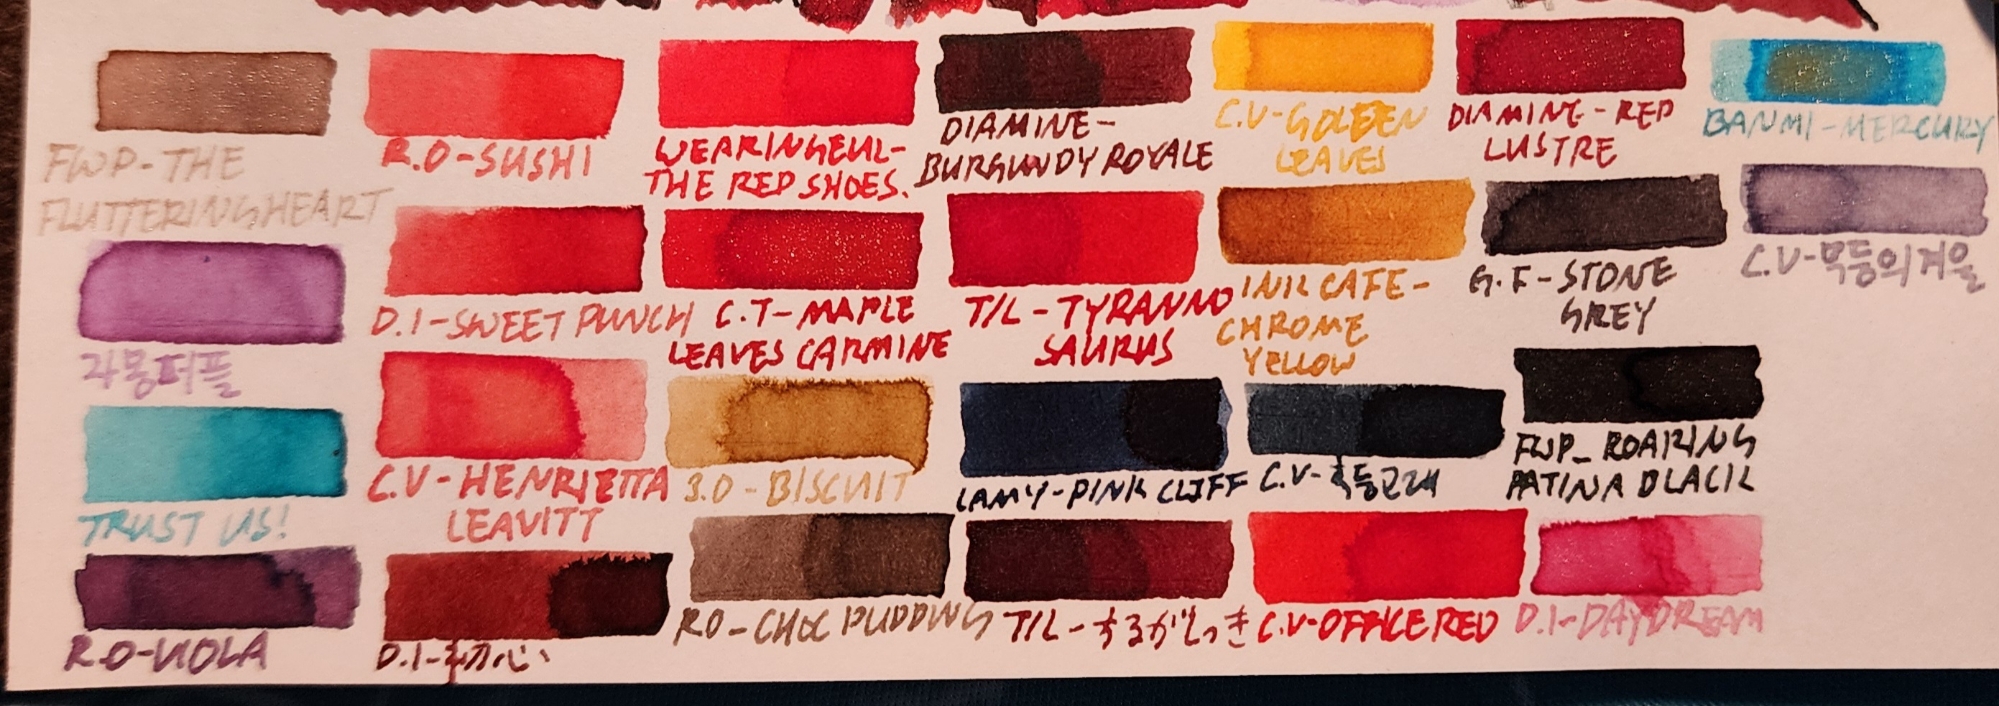 FWP-THE
FLUTTERINGHEART
R.O-SUSHI
WEARINGEUL-
THE RED SHOES.
DIAMINE-
BURGUNDY ROYALE
C.V-GOLDEN
LEAVES
DIAMINE-RED
LUSTRE
BANMI-MERCURY
자몽퍼플
D.I-SWEET PUNCH
C.T-MAPLE
LEAVES CARMINE
T/L-TYRANNO
SAURUS
INK CAFE-
CHROME
YELLOW
G.F-STONE
GREY
C.V-묵등의겨울
TRUST US!
C.V-HENRIETTA
LEAVITT
3.0-BISCUIT
LAMY-PINK CLIFF
C.V-
FWP_ROARING
PATINA BLACK
R.O-VIOLA
D.I-初心
RO-CHOC PUDDING
T/L-するがどっき
C.V-OFFICE RED
D.I-DAYDREAM